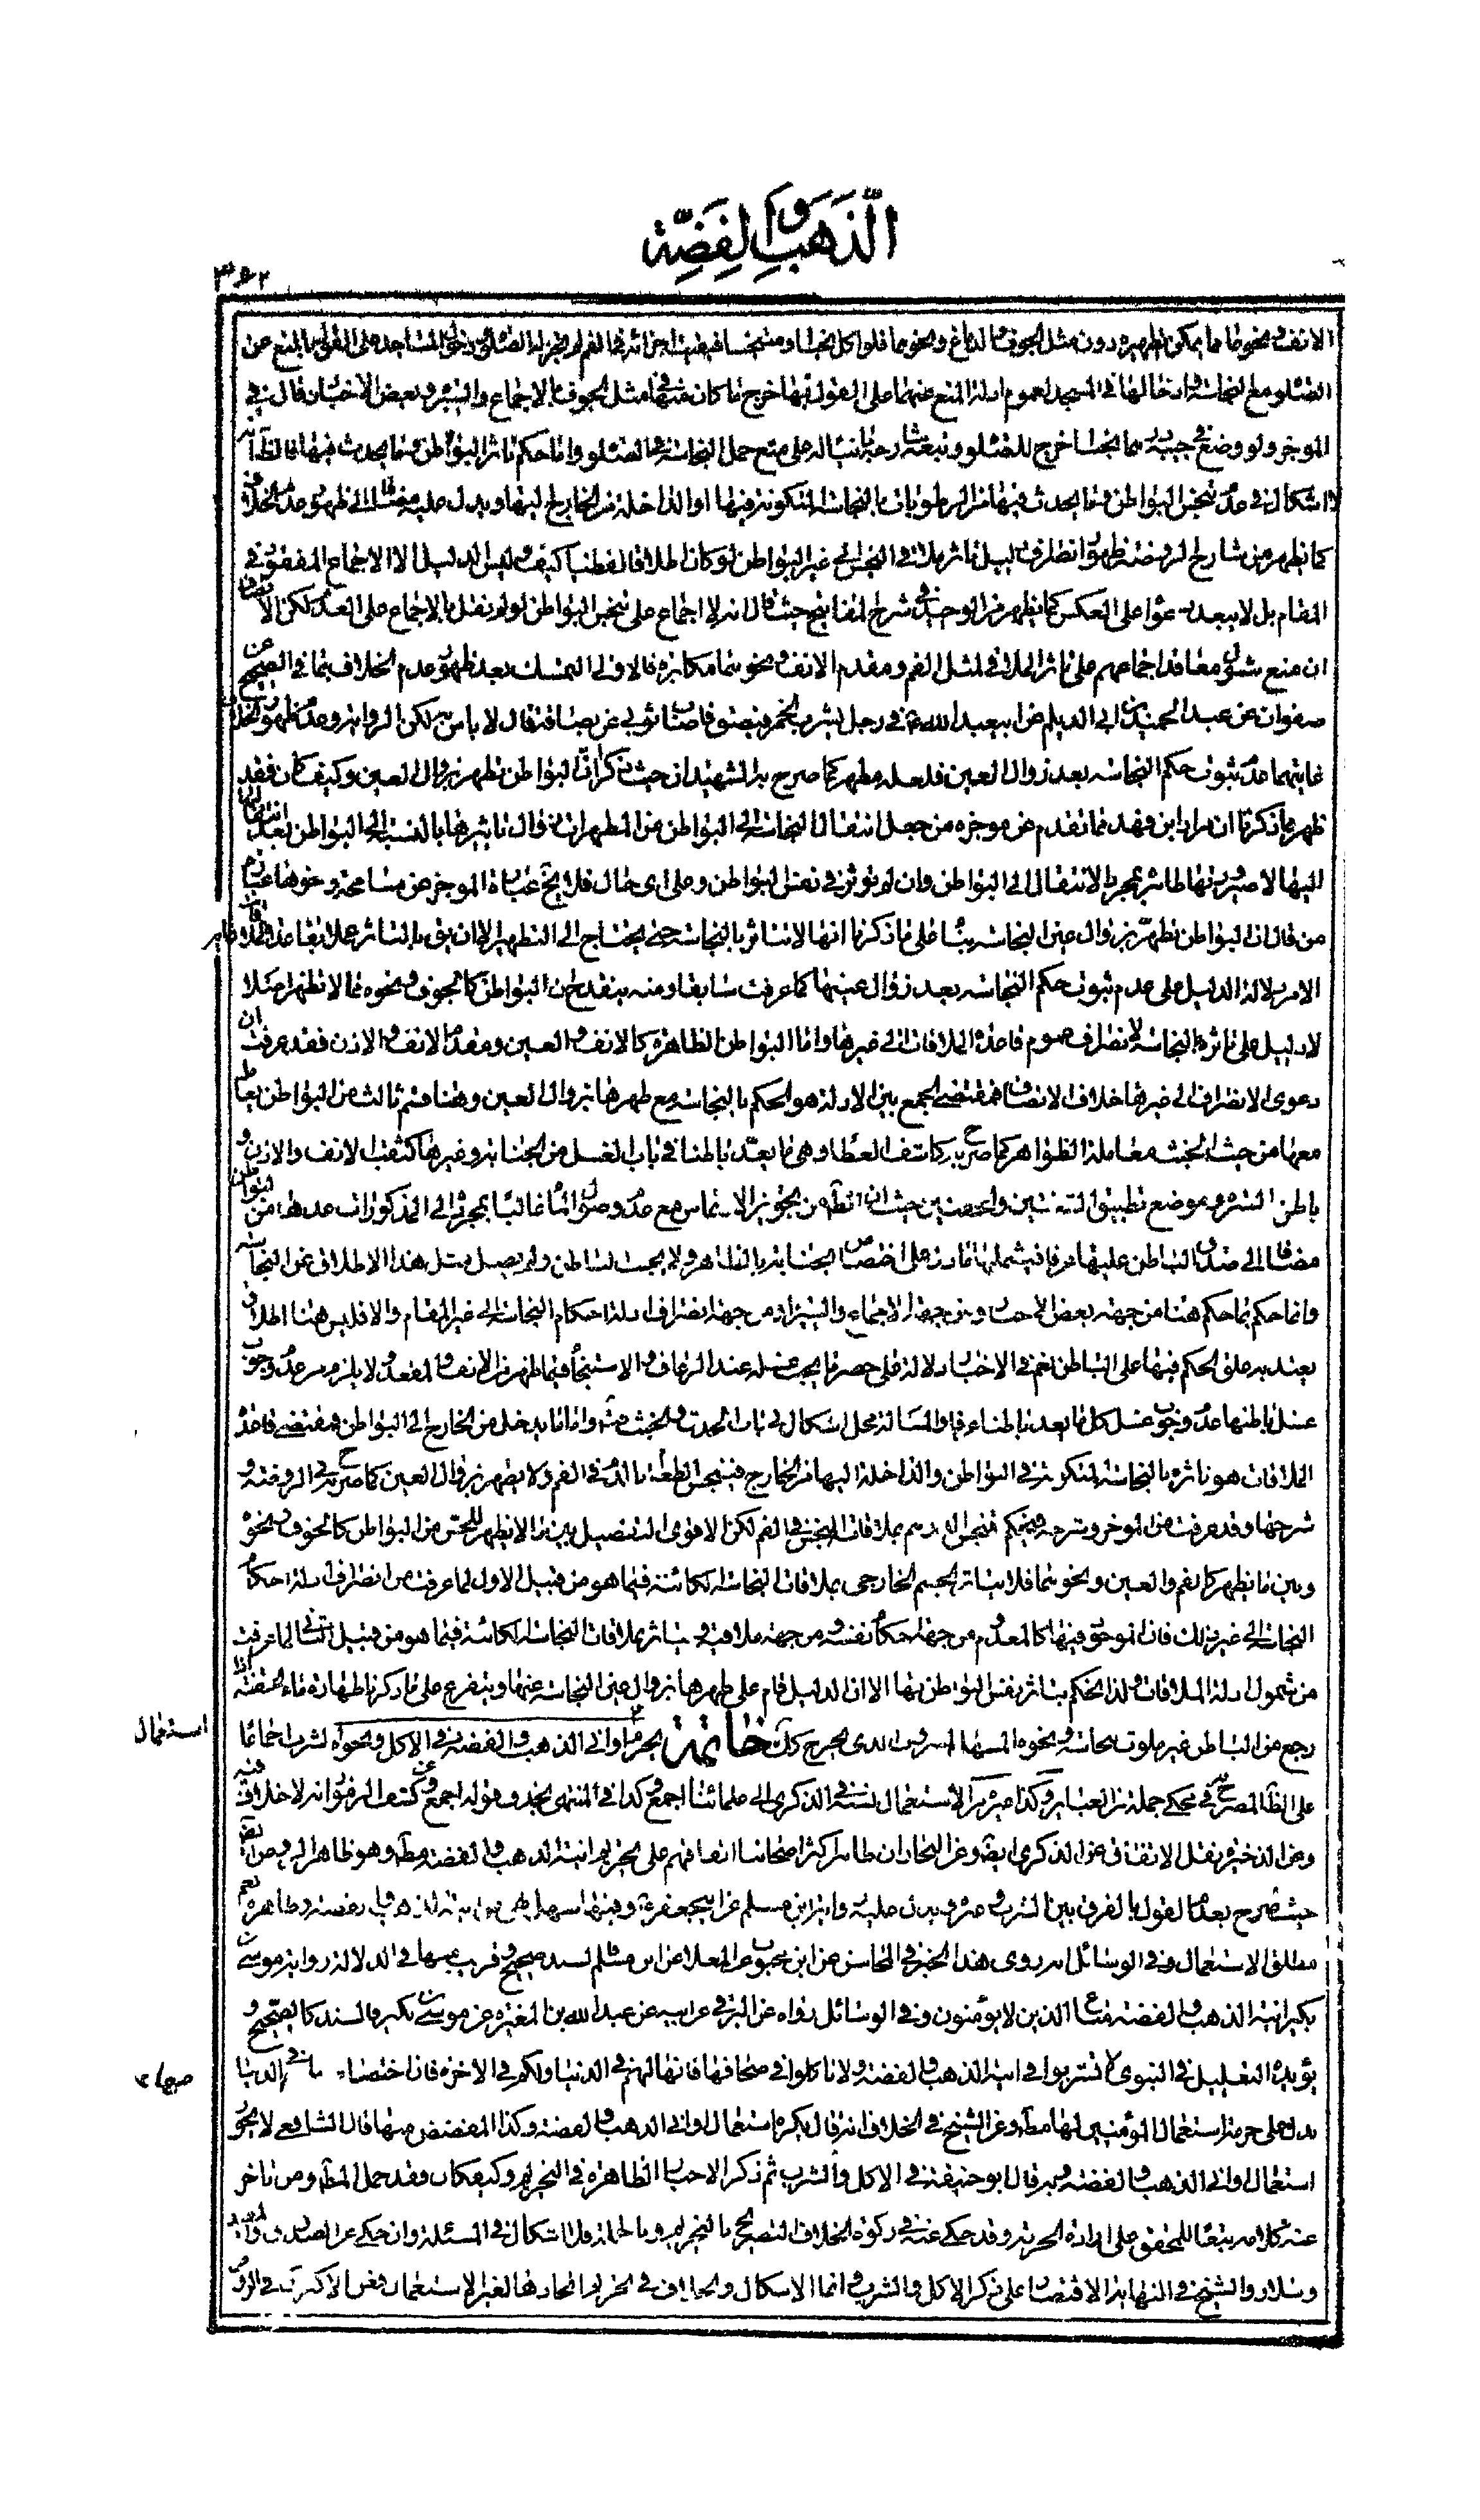 الذهب والفضة
٣٩٢
الانف ونحوها مما يمكن تطهيره دون مثل الجوف والدماغ ونحوهما فلو اكل نجسا او متنجسا فبقيت اجزائه في الفم لم يجز له الصلوة ودخول المساجد على القول بالمنع عن
الصلوة مع النجاسة وادخالها في المسجد لعموم ادلة المنع عنهما على القول بها خرج ما كان منها في مثل الجوف بالاجماع والسيرة وبعض الاخبار قال في
الموجز ولو وضع في جيبه نجسا خرج للصلوة وتبعه شارحه بناء له على منع حمل النجاسة في الصلوة واما حكم تاثر البواطن بما يحدث فيها فالظ انه
لا اشكال في عدم تنجس البواطن بما يحدث فيها من الرطوبات بالنجاسة المتكونة فيها او الداخلة من الخارج اليها ويدل عليه مضافا الى ظهور عدم الخلاف فيه
كما يظهر من شارح الروضة ظهور انصراف دليل تاثر ملاقي النجس الى غير البواطن لو كان اطلاق لفظي كيف وليس الدليل الا الاجماع المفقود في
المقام بل لا يبعد دعوا على العكس كما يظهر من الوحيد في شرح المفاتيح حيث قال انه لا اجماع على تنجس البواطن لو لم نقل بالاجماع على العدم لكن الانصاف
ان منع شمول معاقد اجماعهم على تاثر الملاقي لمثل الفم ومقدم الانف ونحوهما مكابرة فالاولى التمسك بعد ظهور عدم الخلاف بما في الصحيح عن
صفوان عن عبد الحميد بن ابي الديلم عن ابيعبد الله ع في رجل يشرب الخمر فيبصق فاصاب ثوبي من بصاقه قال لا باس به لكن الرواية وعدم ظهور الخلاف
غايتهما عدم ثبوت حكم النجاسة بعد زوال العين فلعله مطهر كما صرح به الشهيدان حيث ذكرا ان البواطن تطهر بزوال العين وكيف كان فقد
ظهر مما ذكرنا ان مراد ابن فهد فيما تقدم عن موجزه من جعل انتقال النجاسة الى البواطن من المطهرات زوال تاثيرها بالنسبة الى البواطن بعد انتقالها
اليها لا صيرورتها طاهرة بمجرد الانتقال الى البواطن وان لم تؤثر في نفس البواطن وعلى اى حال فلا يخ عبارة الموجز عن مسامحة ونحوها عبارة
من قال ان البواطن تطهر بزوال عين النجاسة بناء على ما ذكرنا انها لا تتاثر بالنجاسة حتى يحتاج الى التطهير الا ان يق بالتاثر عملا بقاعدة الملاقات غاير
الامر دلالة الدليل على عدم ثبوت حكم النجاسة بعد زوال عينها كما عرفت سابقا ومنه ينقدح ان البواطن كالجوف ونحوه مما لا تظهر اصلا
لا دليل على تاثره بالنجاسة لانصراف عموم قاعدة الملاقات الى غيرها واما البواطن الظاهرة كالانف والعين ومقدم الانف والاذن فقد عرفت ان
دعوى الانصراف الى غيرها خلاف الانصاف فمقتضى الجمع بين الادلة هو الحكم بالنجاسة مع طهرها بزوال العين وهنا قسم ثالث من البواطن يعامل
معها من حيث الخبث معاملة الظواهر كما صرح به كاشف الغطاء وهى ما يعد باطنا في باب الغسل من الجنابة وغيرها كثقب الانف والاذن و
باطن السرة وموضع تطبيق الشفتين
مضافا الى صدق الباطن عليها عرفا فيشملها ما دل على اختصاص الجنابة بالظاهر ولا يجب الباطن ولم يصل مثل هذا الاطلاق عن النجاسة
وانما حكم بما حكم هنا من جهة بعض الاخبار ومن جهة الاجماع والسيرة ومن جهة انصراف ادلة احكام النجاسة الى غير المقام والا فليس هنا اطلاق
يعتد به علق الحكم فيها على الباطن نعم في الاخبار دلالة على حصر ما يجب غسله عند الرعاف والاستنجاء فيما ظهر من الانف والمقعدة ولا يلزم من عدم وجوب
غسل باطنها عدم وجوب غسل كل ما يعد باطنا عرفا والمسالة محل اشكال في باب الحدث والخبث واما ما يدخل من الخارج الى البواطن فمقتضى قاعدة
الملاقات هو تاثره بالنجاسة المتكونة في البواطن والداخلة اليها من الخارج فينجس الطعام بالدم في الفم ولا يطهر بزوال العين كما صرح به في الروضة و
شرحها وقد عرفت من الموجز وشرحه الحكم بنجاسة الدرهم بملاقات النجس في الفم لكن الاقوى التفصيل بين ما لا يظهر للحس من البواطن كالجوف ونحوه
وبين ما يظهر كالفم والعين ونحوهما فلا يتاثر الجسم الخارجى بملاقات النجاسة الكائنة فيما هو من قبيل الاول لما عرفت من انصراف ادلة احكام
النجاسة الى غير ذلك فان الموجود فيها كالمعدوم من جهة احكام نفسه ومن جهة ملاقيه ويتاثر بملاقات النجاسة الكائنة فيما هو من قبيل الثاني لما عرفت
من شمول ادلة الملاقات ولذا الحكم بتاثر نفس البواطن بها الا ان الدليل قام على طهرها بزوال عين النجاسة عنها ويتفرع على ما ذكرنا طهارة ماء الحقنة اذا
رجع من الباطن غير ملوث بنجاسة ونحوه
خاتمة يحرم استعمال اوانى الذهب والفضة في الاكل ونحوه الشرب اجماعا
على الظ المصرح به في محكى جملة من العبائر وكذا غيرهما من الاستعمال نسبه في الذكرى الى علمائنا اجمع وكذا في المنتهى وعن كشف الرموز انه لا خلاف فيه
وعن الذخيرة نقل الاتفاق عن الذكرى ايضا وعن البحار ان ظاهر اكثر اصحابنا اتفاقهم على تحريم انية الذهب والفضة مط وهو ظاهر
مطلق الاستعمال وفي الوسائل انه روى هذا الخبر في المحاسن عن ابن محبوب عن العلا عن ابن مسلم بسند صحيح وقريب منها في الدلالة رواية موسى بن
بكير انية الذهب والفضة متاع الذين لا يؤمنون وفي الوسائل رواه عن البرقي عن ابيه عن عبد الله بن المغيرة عن موسى بن بكير والسند كالصحيح و
يؤيده التعليل في النبوى لا تشربوا في انية الذهب والفضة ولا تاكلوا في صحافها فانها لهم في الدنيا ولكم في الاخرة فان اختصاص ما في الدنيا
يدل على حرمة استعمال المؤمنين لها مط وعن الشيخ في الخلاف انه قال يكره استعمال اوانى الذهب والفضة وكذا المفضض منها قال الشافعى لا يجوز
استعمال اوانى الذهب والفضة وبه قال ابو حنيفة في الاكل والشرب ثم ذكر الاخبار الظاهرة في التحريم وكيف كان فقد حمل العلامة ومن تاخر
عنه كلامه تبعا للمحقق على ارادة الحرمة وقد حكى عنه في زكوة الخلاف التصريح بالتحريم وبالجملة فلا اشكال في المسئلة وان حكى عن الصدوق والمفيد
وسلار والشيخ في النهاية الاقتصار على ذكر الاكل والشرب وانما الاشكال والخلاف في تحريم اتخاذها لغير الاستعمال فعن الاكثر